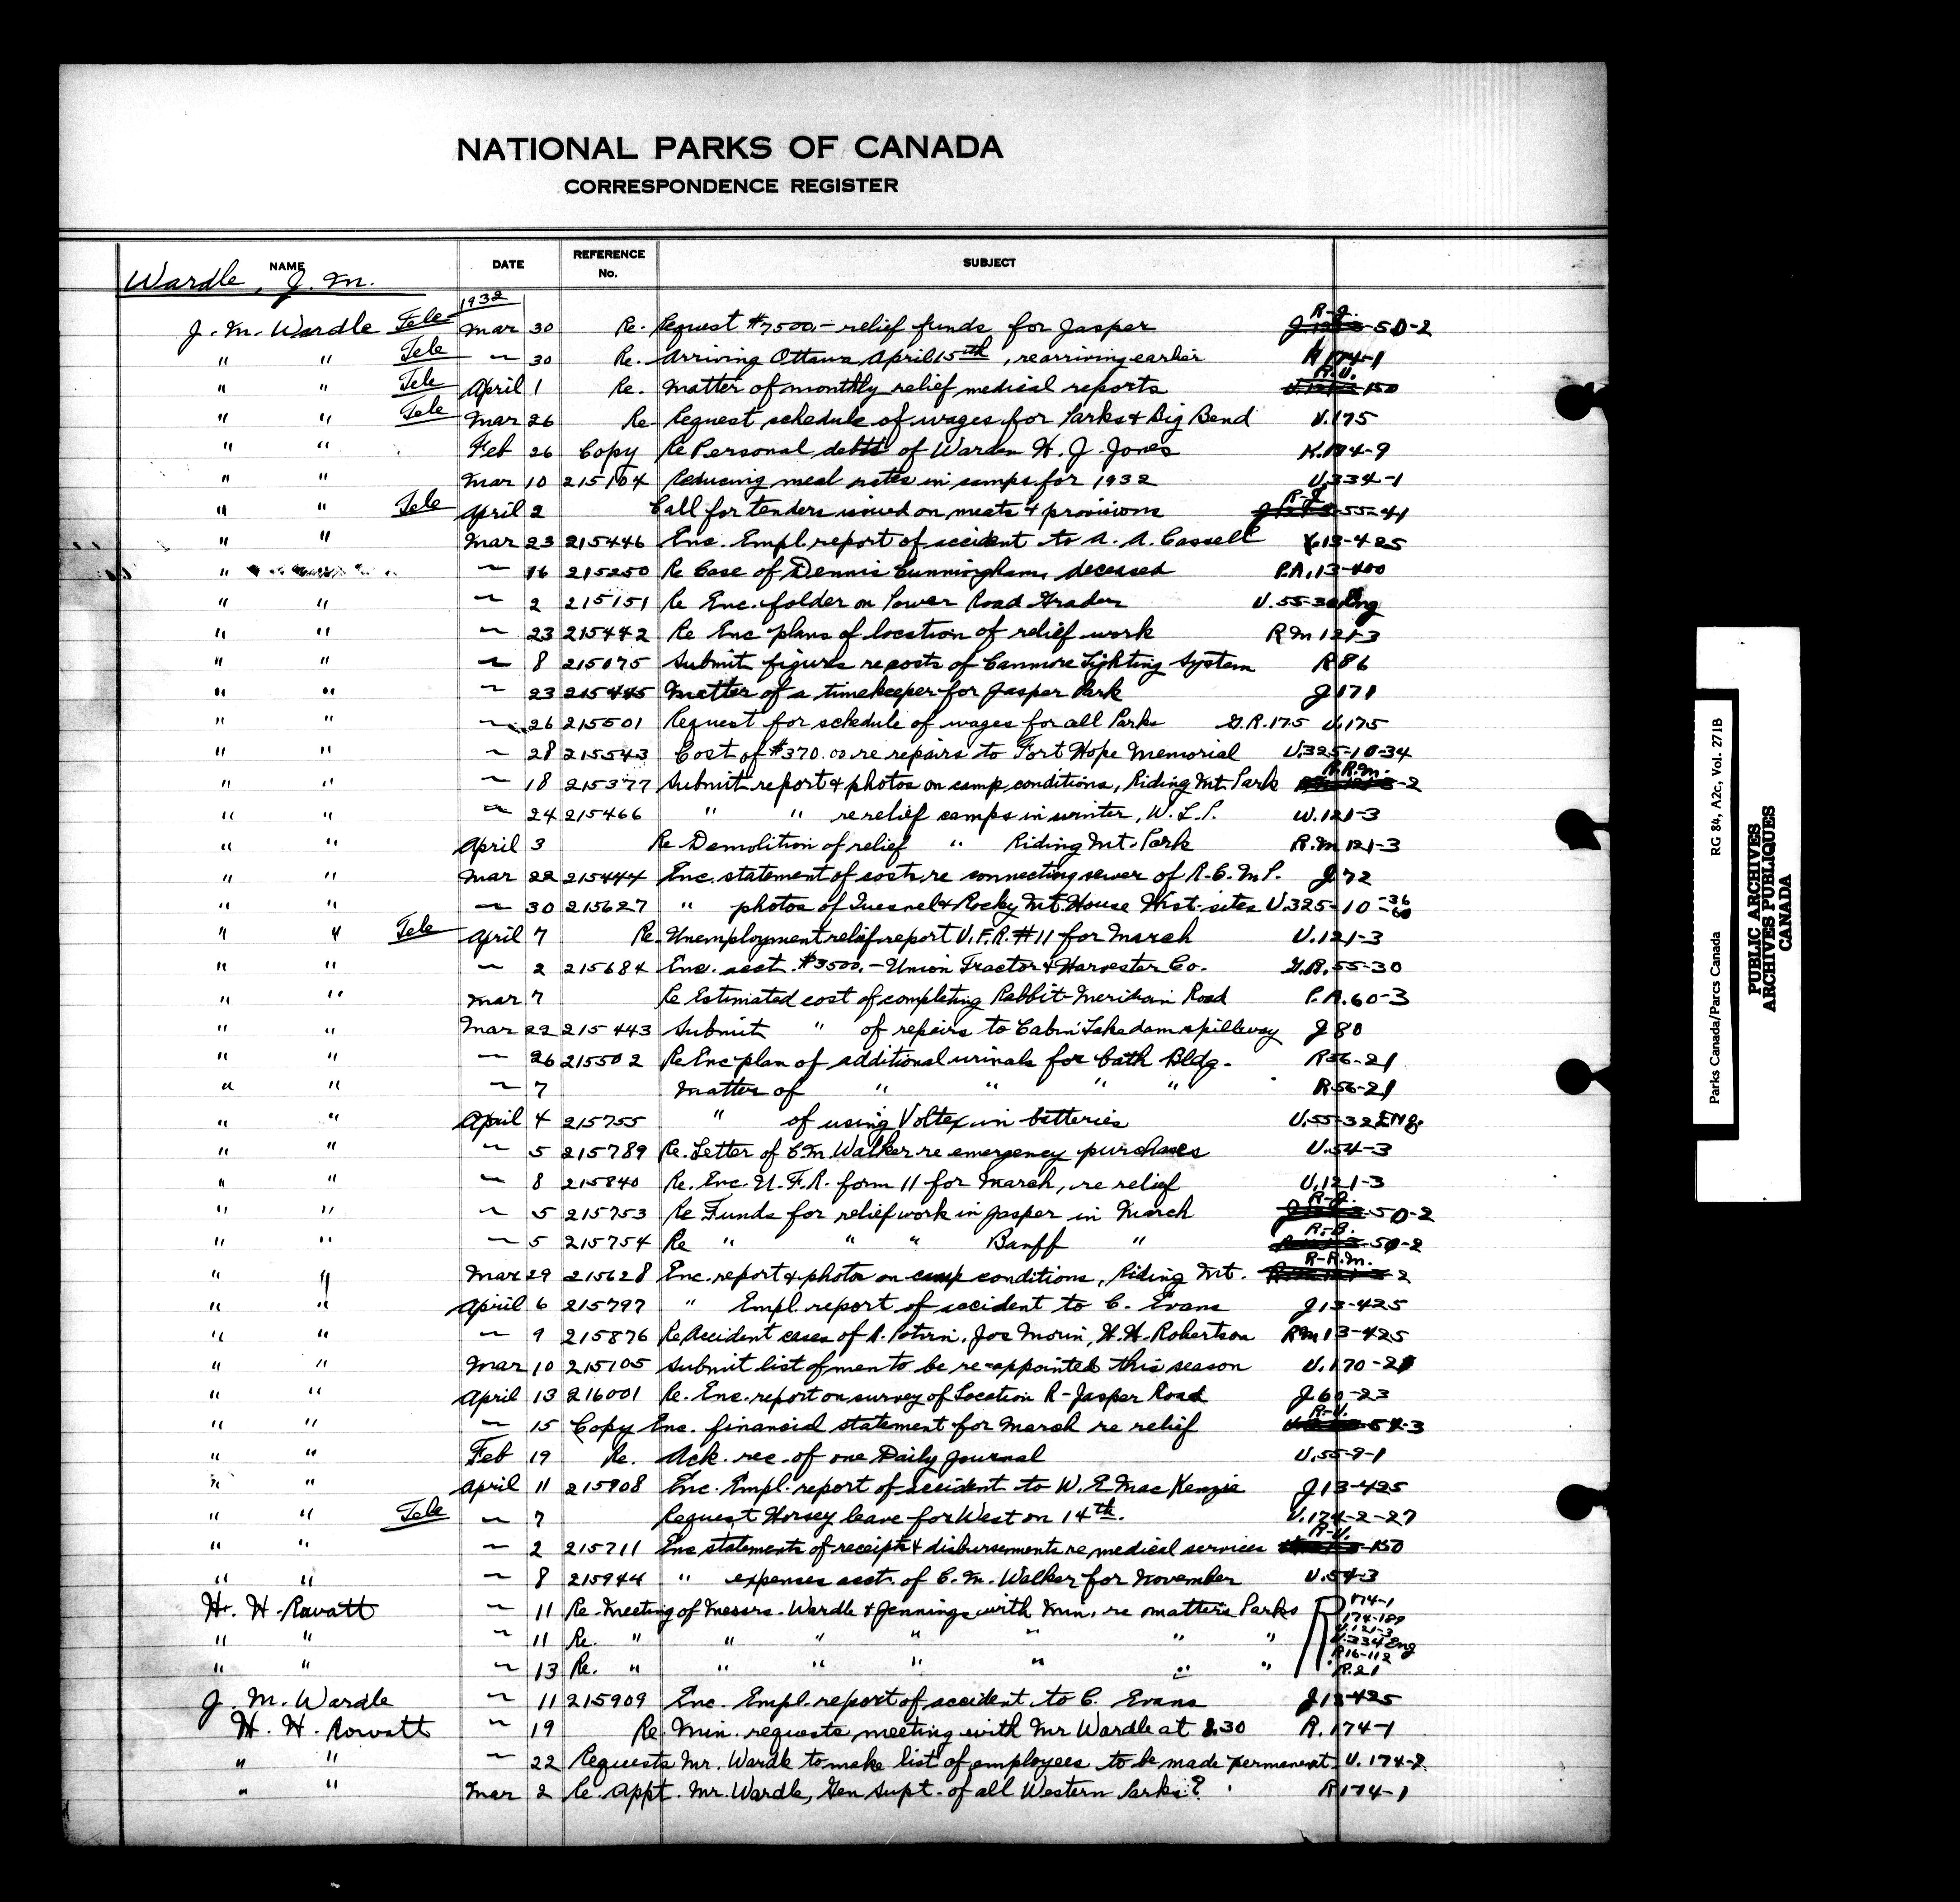 NATIONAL PARKS OF CANADA
CORRESPONDENCE REGISTER
NAME DATE REFERENCE No. SUBJECT
Wardle, J. M.
1932
J. M. Wardle Tele Mar 30 Re. Request $7500.- relief funds for Jasper R-J. 50-2
" " Tele ~ 30 Re. Arriving Ottawa April 15th, re arriving earlier R 174-1
" " Tele April 1 Re. Matter of monthly relief medical reports R.U. 150
" " Tele Mar 26 Re Request schedule of wages for Parks & Big Bend U.175
" " Feb 26 Copy Re Personal debts of Warden H. J. Jones K.174-9
" " Mar 10 215104 Reducing meal rates in camps for 1932 U.334-1
" " Tele April 2 Call for tenders issued on meats & provisions R-J. 55-41
" " Mar 23 215446 Enc. Empl. report of accident to A. A. Cassell 13-425
" ~ 16 215250 Re Case of Dennis Cunningham, deceased P.A. 13-400
" " ~ 2 215151 Re Enc. folder on Power Road Grader U.55-30 Eng
" " ~ 23 215442 Re Enc plans of location of relief work R m 121-3
" " ~ 8 215075 Submit figures re costs of Canmore Lighting System R 86
" " ~ 23 215445 Matter of a timekeeper for Jasper Park J 171
" " ~ 26 215501 Request for schedule of wages for all Parks G.R.175 U.175
" " ~ 28 215543 Cost of $370.00 re repairs to Fort Hope Memorial U.325-10-34
" " ~ 18 215377 Submit report & photos on camp conditions, Riding Mt. Park R.R.M. -2
" " ~ 24 215466 " " re relief camps in winter, W.L.P. W.121-3
" " April 3 Re Demolition of relief " Riding Mt. Park R.M 121-3
" " Mar 22 215444 Enc. statement of costs re connecting sewer of R.C.M.P. J 72
" " ~ 30 215627 " photos of Quesnel & Rocky Mt. House Hist. sites U.325-10 -36 -60
" " Tele April 7 Re Unemployment relief report U.F.R. #11 for March U.121-3
" " ~ 2 215684 Enc. acct. $3500.- Union Tractor & Harvester Co. G.R. 55-30
" " Mar 7 Re Estimated cost of completing Rabbit-Meridian Road P.A. 60-3
" " Mar 22 215443 Submit " of repairs to Cabin Lake dam spillway J 80
" " ~ 26 215502 Re Enc plan of additional urinals for bath Bldg. R56-21
" " ~ 7 Matter of " " " " R.56-21
" " April 4 215755 " of using Voltex in batteries U.55-32 Eng.
" " ~ 5 215789 Re. Letter of C.M. Walker re emergency purchases U.54-3
" " ~ 8 215840 Re. Enc. U.F.R. form 11 for March, re relief U.121-3
" " ~ 5 215753 Re Funds for relief work in Jasper in March R-J. 50-2
" " ~ 5 215754 Re " " " Banff " R-B. 50-2
" " Mar 29 215628 Enc. report & photos on camp conditions, Riding Mt. R-R.M. 2
" " April 6 215797 " Empl. report of accident to C. Evans J 13-425
" " ~ 9 215876 Re Accident cases of A. Potvin, Jos Morin, H.H. Robertson RM 13-425
" " Mar 10 215105 Submit list of men to be re-appointed this season U.170-2
" " April 13 216001 Re. Enc. report on survey of Location R-Jasper Road J.60-23
" " ~ 15 Copy Enc. financial statement for March re relief R-U. 54-3
" " Feb 19 Re. Ack. rec. of one Daily Journal U.55-9-1
" " April 11 215908 Enc. Empl. report of accident to W. E Mac Kenzie J 13-425
" " Tele ~ 7 Request Horsey leave for West on 14th. U.174-2-27
" " ~ 2 215711 Enc statements of receipts & disbursements re medical services R-U. 150
" " ~ 8 215944 " expenses acct. of C. M. Walker for November U.54-3
H. H. Rowatt ~ 11 Re-Meeting of Messrs. Wardle & Jennings with Min. re matters Parks 174-1
174-189
" " ~ 11 Re. " " " " " " " U.121-3
U.334 Eng
R16-112
" " ~ 13 Re. " " " " " " " R.21
J. M. Wardle ~ 11 215909 Enc. Empl. report of accident to C. Evans J 13-425
H. H. Rowatt ~ 19 Re Min. requests meeting with Mr Wardle at 8.30 R.174-1
" " ~ 22 Requests Mr. Wardle to make list of employees to be made permanent. U.174-2
" " Mar 2 Re. Appt. Mr. Wardle, Gen Supt. of all Western Parks? R174-1
Parks Canada/Parcs Canada RG 84, A2c, Vol. 271B
PUBLIC ARCHIVES
ARCHIVES PUBLIQUES
CANADA